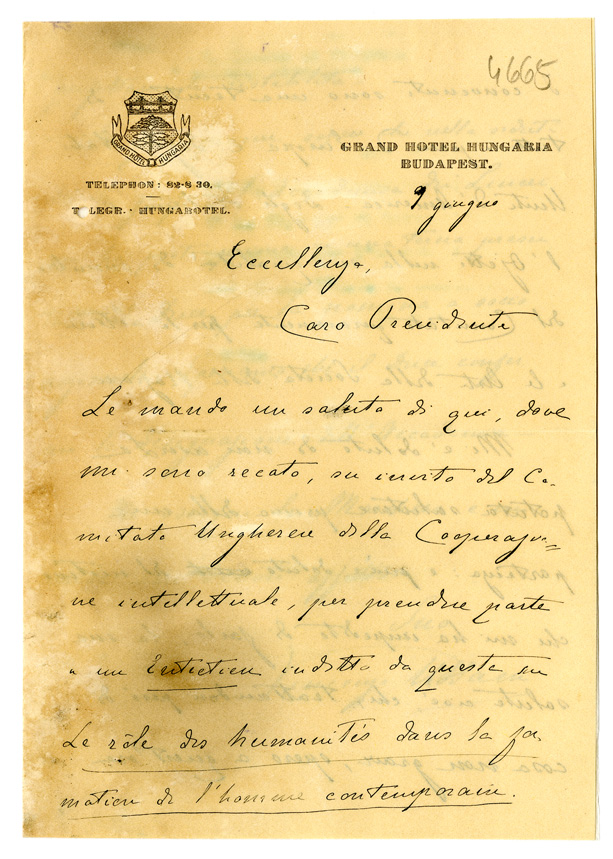 4665
GRAND HOTEL HUNGARIA
GRAND HOTEL HUNGÁRIA
BUDAPEST.
TELEPHON: 82-8 30.
TELEGR. HUNGAROTEL.
9 giugno
Eccellenza,
Caro Presidente
Le mando un saluto di qui, dove
mi sono recato, su invito del Co-
mitato Ungherese della Cooperazio=
ne intellettuale, per prendere parte
a un Entretien indetto da questa su
Le rôle des humanités dans la for
mation de l'homme contemporain.